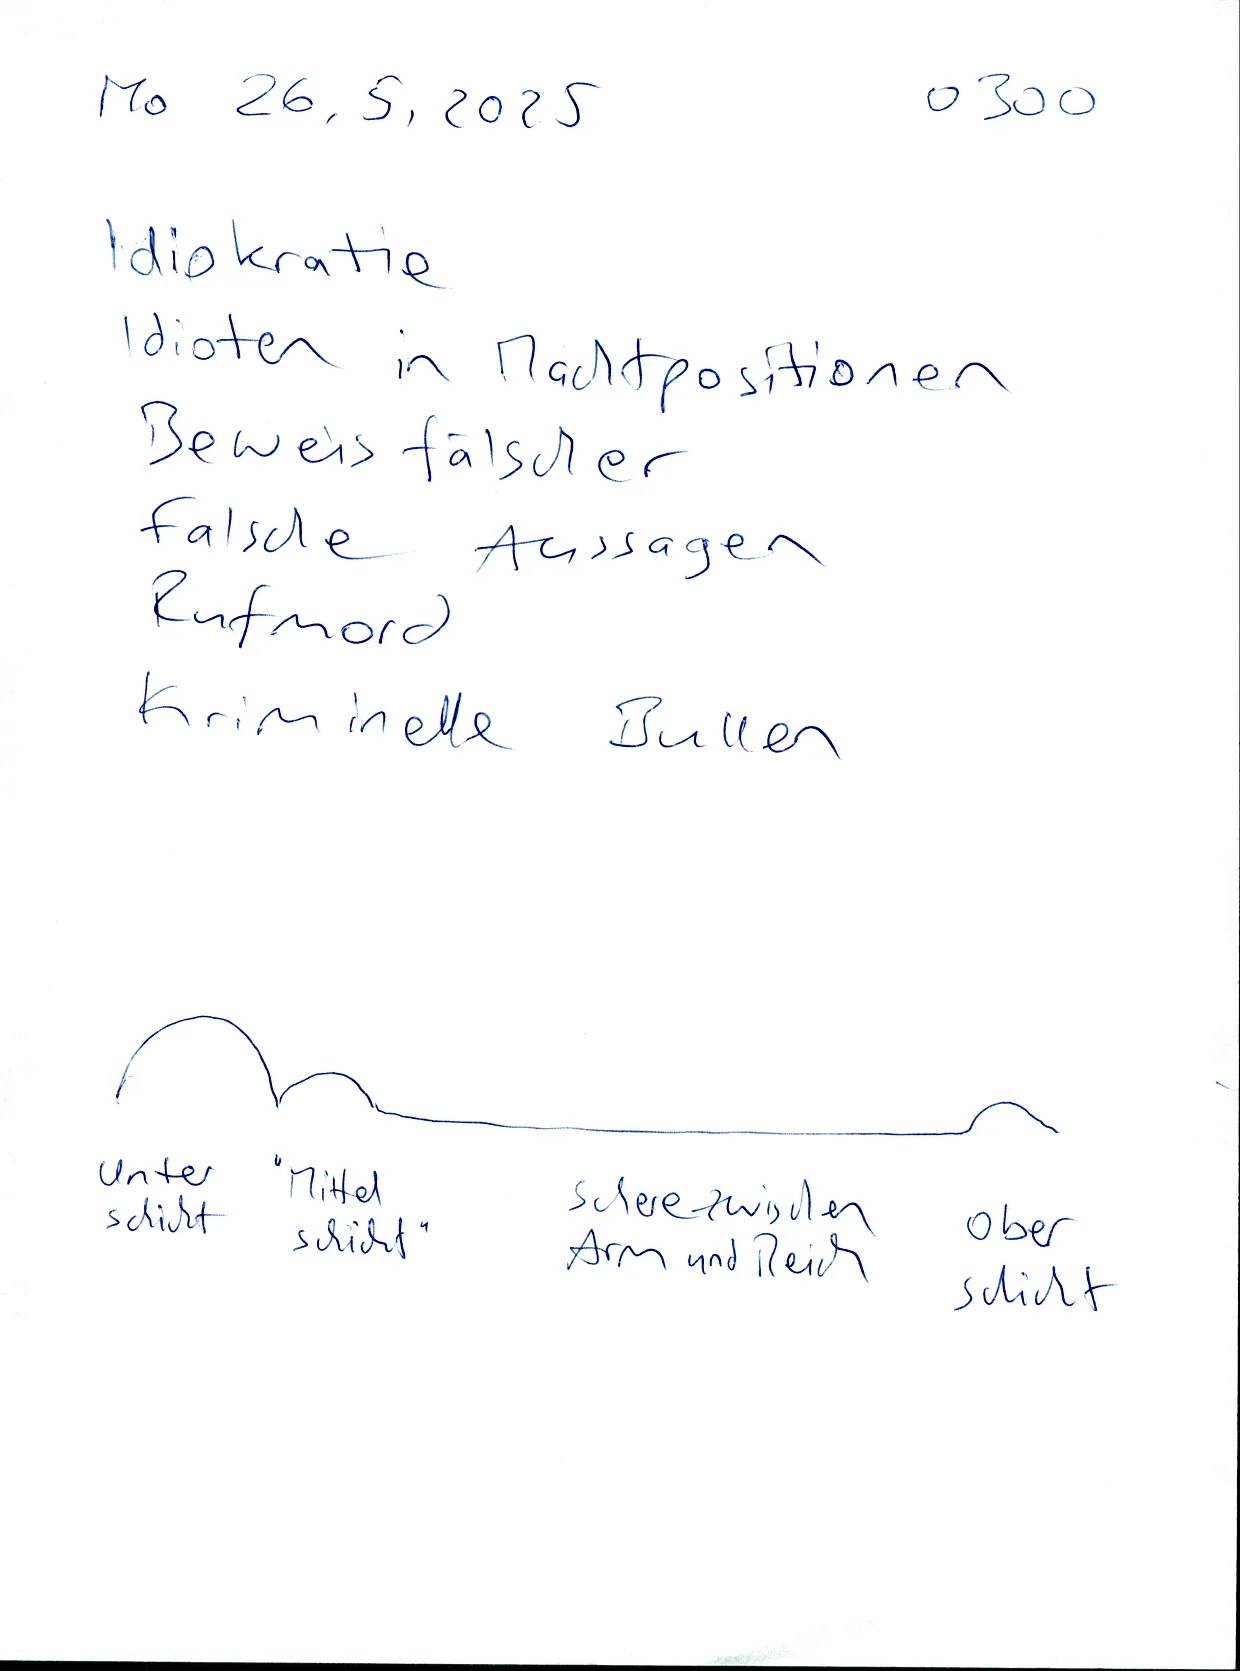 Mo 26.5.2025 0300
Idiokratie
Idioten in Machtpositionen
Beweis fälscher
Falsche Aussagen
Rufmord
Kriminelle Bullen
Unter "Mittel Schere zwischen Ober
schicht schicht" Arm und Reich schicht